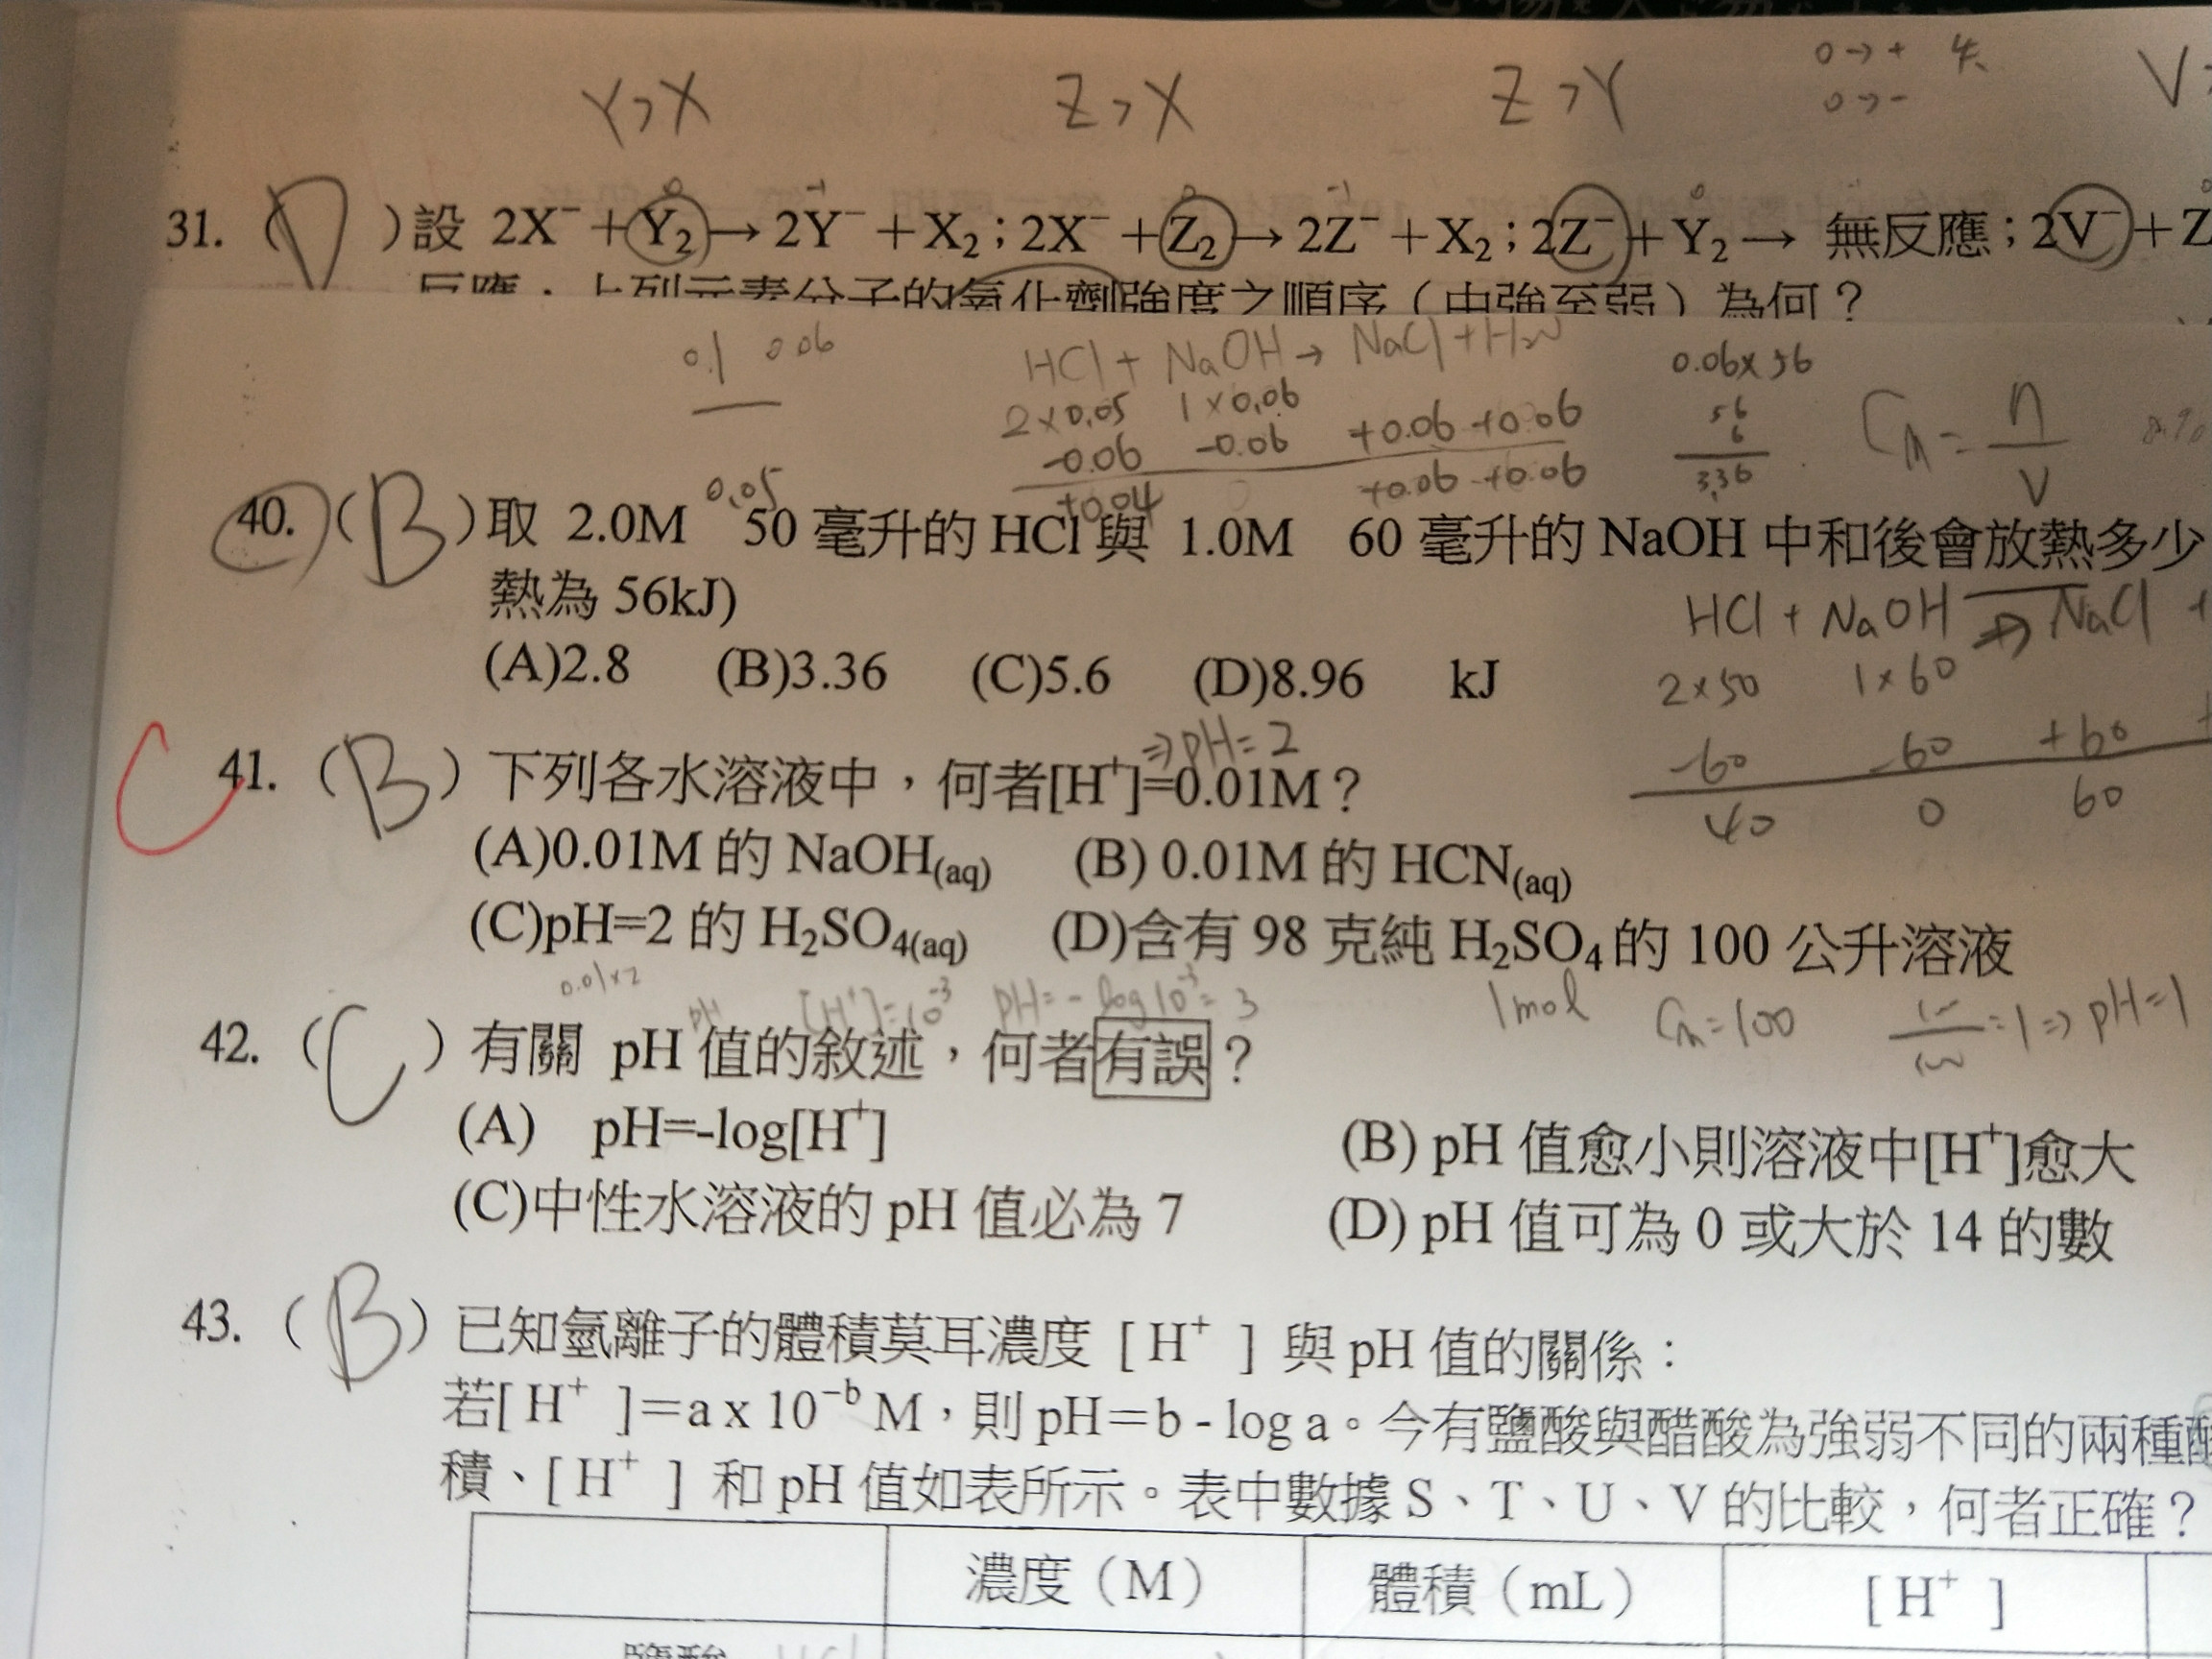 Y>X Z>X Z>Y 0→+ 失 V
0→-
31. (D)設 2X⁻+Y₂→2Y⁻+X₂;2X⁻+Z₂→2Z⁻+X₂;2Z⁻+Y₂→ 無反應;2V⁻+Z
反應,上列元素分子的氧化劑強度之順序(由強至弱)為何?
0.1 0.06 HCl + NaOH → NaCl + H₂O 0.06×56
2×0.05 1×0.06 56 Cм = n/V
-0.06 -0.06 +0.06 +0.06 6
+0.04 0 +0.06 +0.06 3.36
0.05
40. (B)取 2.0M 50 毫升的 HCl 與 1.0M 60 毫升的 NaOH 中和後會放熱多少
熱為 56kJ)
HCl + NaOH → NaCl +
(A)2.8 (B)3.36 (C)5.6 (D)8.96 kJ
2×50 1×60
⇒pH=2
-60 -60 +60 +
C 41. (B) 下列各水溶液中,何者[H⁺]=0.01M?
40 0 60
(A)0.01M 的 NaOH(aq) (B) 0.01M 的 HCN(aq)
(C)pH=2 的 H₂SO₄(aq) (D)含有 98 克純 H₂SO₄的 100 公升溶液
0.01×2 pH [H⁺]=10⁻³ pH=-log10⁻³=3 1mol Cм=100 =1⇒pH=1
42. (C) 有關 pH 值的敘述,何者有誤?
(A) pH=-log[H⁺] (B) pH 值愈小則溶液中[H⁺]愈大
(C)中性水溶液的 pH 值必為 7 (D) pH 值可為 0 或大於 14 的數
43. (B) 已知氫離子的體積莫耳濃度 [ H⁺ ] 與 pH 值的關係:
若[ H⁺ ]=a x 10⁻ᵇ M,則 pH=b - log a。今有鹽酸與醋酸為強弱不同的兩種酸
積、[ H⁺ ] 和 pH 值如表所示。表中數據 S、T、U、V 的比較,何者正確?
濃度(M) 體積(mL) [ H⁺ ]
鹽酸 HCl